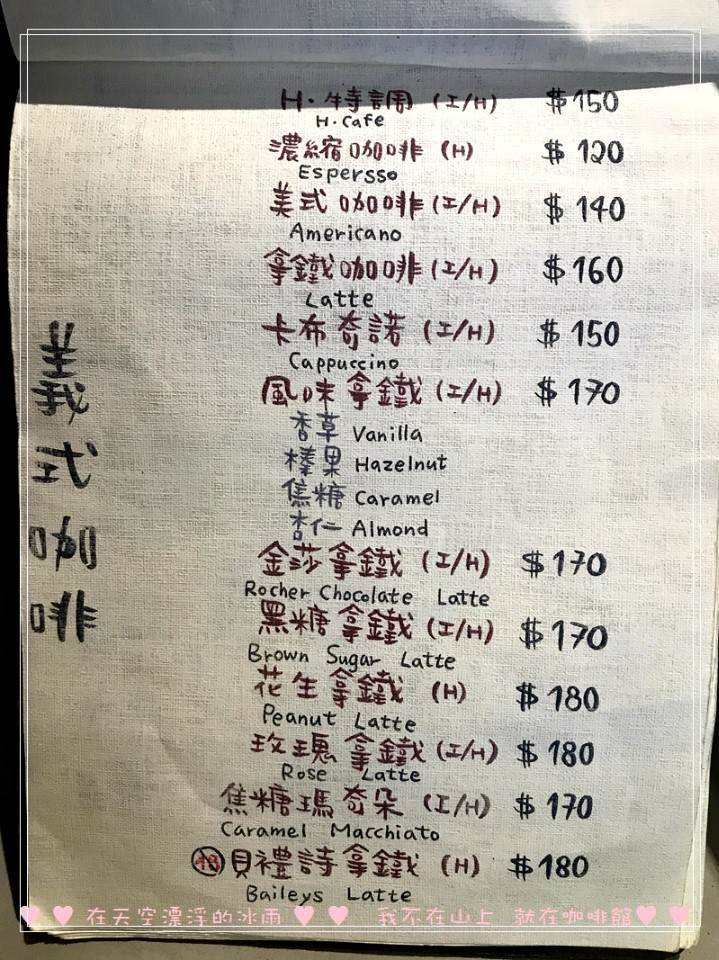 義式咖啡
H·特調 (I/H) $150
H·Cafe
濃縮咖啡 (H) $120
Espersso
美式咖啡 (I/H) $140
Americano
拿鐵咖啡 (I/H) $160
Latte
卡布奇諾 (I/H) $150
Cappuccino
風味拿鐵 (I/H) $170
香草 Vanilla
榛果 Hazelnut
焦糖 Caramel
杏仁 Almond
金莎拿鐵 (I/H) $170
Rocher Chocolate Latte
黑糖拿鐵 (I/H) $170
Brown Sugar Latte
花生拿鐵 (H) $180
Peanut Latte
玫瑰拿鐵 (I/H) $180
Rose Latte
焦糖瑪奇朵 (I/H) $170
Caramel Macchiato
18 貝禮詩拿鐵 (H) $180
Baileys Latte
♥ ♥ 在天空漂浮的冰雨 ♥ ♥ 我不在山上 就在咖啡館♥ ♥